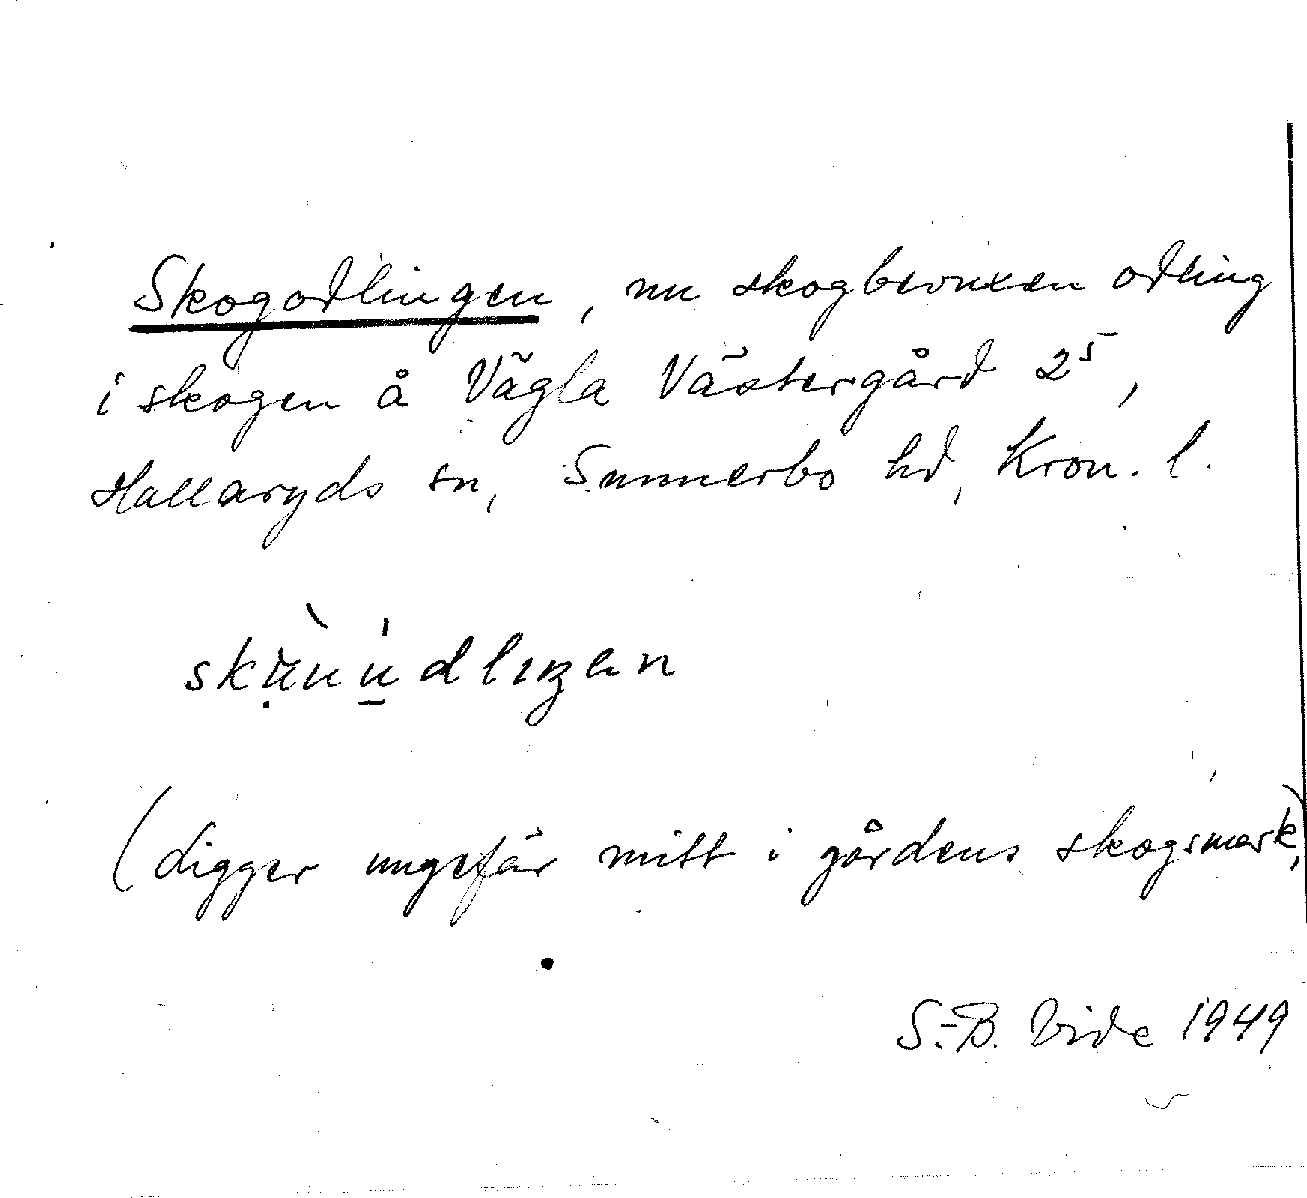 Skogodlingen, nu skogbevuxen odling
i skogen å Vägla Västergård 2⁵,
Hallaryds sn, Sunnerbo hd, Kron. l.
(ligger ungefär mitt i gårdens skogsmark)
S.-B. Vide 1949